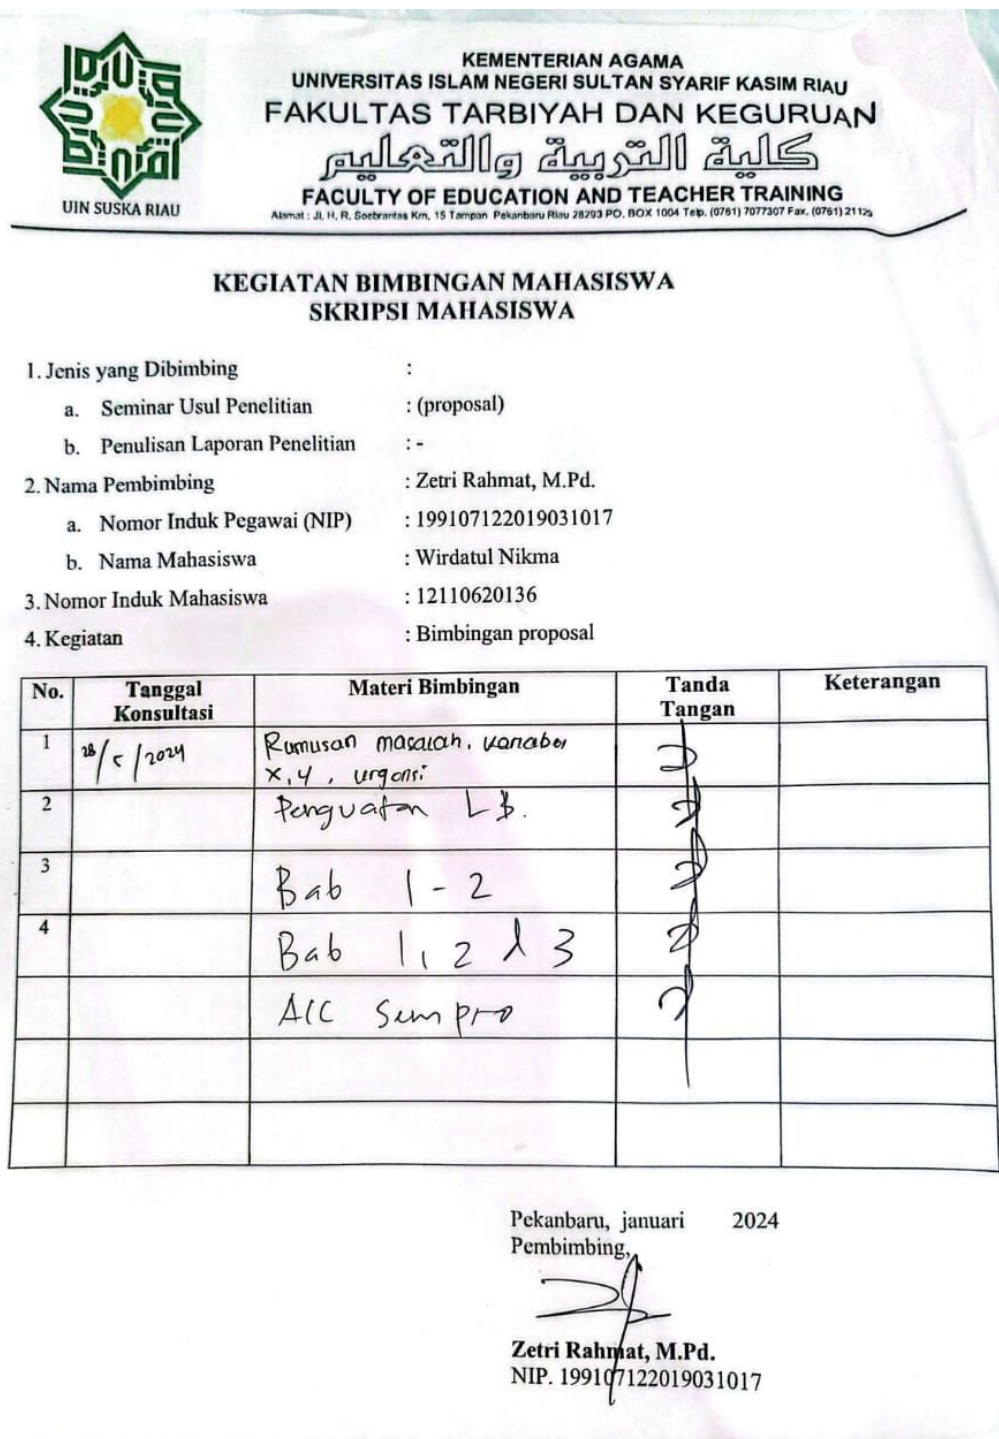 KEMENTERIAN AGAMA
UNIVERSITAS ISLAM NEGERI SULTAN SYARIF KASIM RIAU
FAKULTAS TARBIYAH DAN KEGURUAN
كلية التربية والتعليم
FACULTY OF EDUCATION AND TEACHER TRAINING
Alamat : Jl. H. R. Soebrantas Km. 15 Tampan Pekanbaru Riau 28293 PO. BOX 1004 Telp. (0761) 7077307 Fax. (0761) 21129
UIN SUSKA RIAU
KEGIATAN BIMBINGAN MAHASISWA
SKRIPSI MAHASISWA
1. Jenis yang Dibimbing :
a. Seminar Usul Penelitian : (proposal)
b. Penulisan Laporan Penelitian : -
2. Nama Pembimbing : Zetri Rahmat, M.Pd.
a. Nomor Induk Pegawai (NIP) : 199107122019031017
b. Nama Mahasiswa : Wirdatul Nikma
3. Nomor Induk Mahasiswa : 12110620136
4. Kegiatan : Bimbingan proposal
No. Tanggal Konsultasi Materi Bimbingan Tanda Tangan Keterangan
1 28/5/2024 Rumusan masalah, variabel
x, y, urgensi
2 Penguatan LB.
3 Bab 1 - 2
4 Bab 1, 2 & 3
ACC Sempro
Pekanbaru, januari 2024
Pembimbing,
Zetri Rahmat, M.Pd.
NIP. 199107122019031017